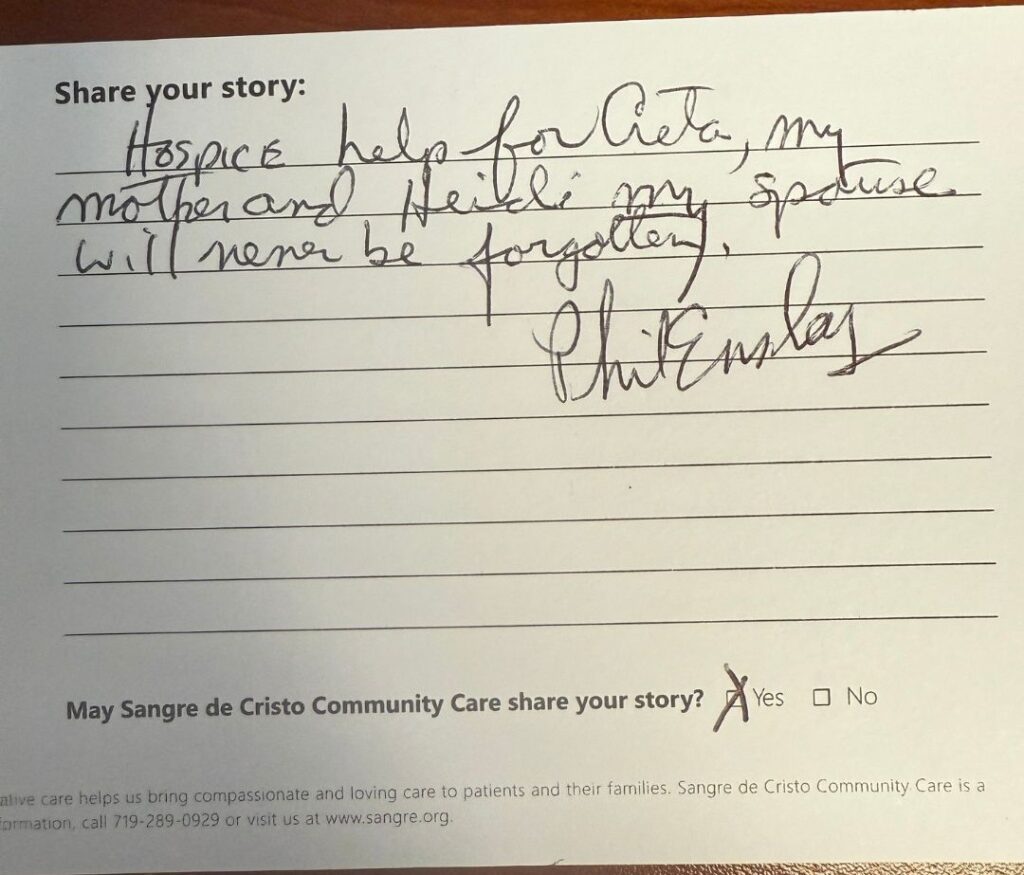 Share your story:
Hospice help for Greta, my
mother and Heidi my spouse
will never be forgotten.
Phil Ensley
May Sangre de Cristo Community Care share your story? Yes No
ative care helps us bring compassionate and loving care to patients and their families. Sangre de Cristo Community Care is a
formation, call 719-289-0929 or visit us at www.sangre.org.